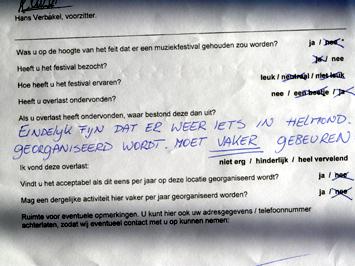 Hans Verbakel, voorzitter.
Was u op de hoogte van het feit dat er een muziekfestival gehouden zou worden? ja / nee
Heeft u het festival bezocht? ja / nee
Hoe heeft u het festival ervaren? leuk / neutraal / niet leuk
Heeft u overlast ondervonden? nee / een beetje / ja
Als u overlast heeft ondervonden, waar bestond deze dan uit?
EINDELIJK FIJN DAT ER WEER IETS IN HELMOND.
GEORGANISEERD WORDT. MOET VAKER GEBEUREN
Ik vond deze overlast: niet erg / hinderlijk / heel vervelend
Vindt u het acceptabel als dit eens per jaar op deze locatie georganiseerd wordt? ja / nee
Mag een dergelijke activiteit hier vaker per jaar georganiseerd worden? ja / nee
Ruimte voor eventuele opmerkingen. U kunt hier ook uw adresgegevens / telefoonnummer
achterlaten, zodat wij eventueel contact met u op kunnen nemen: